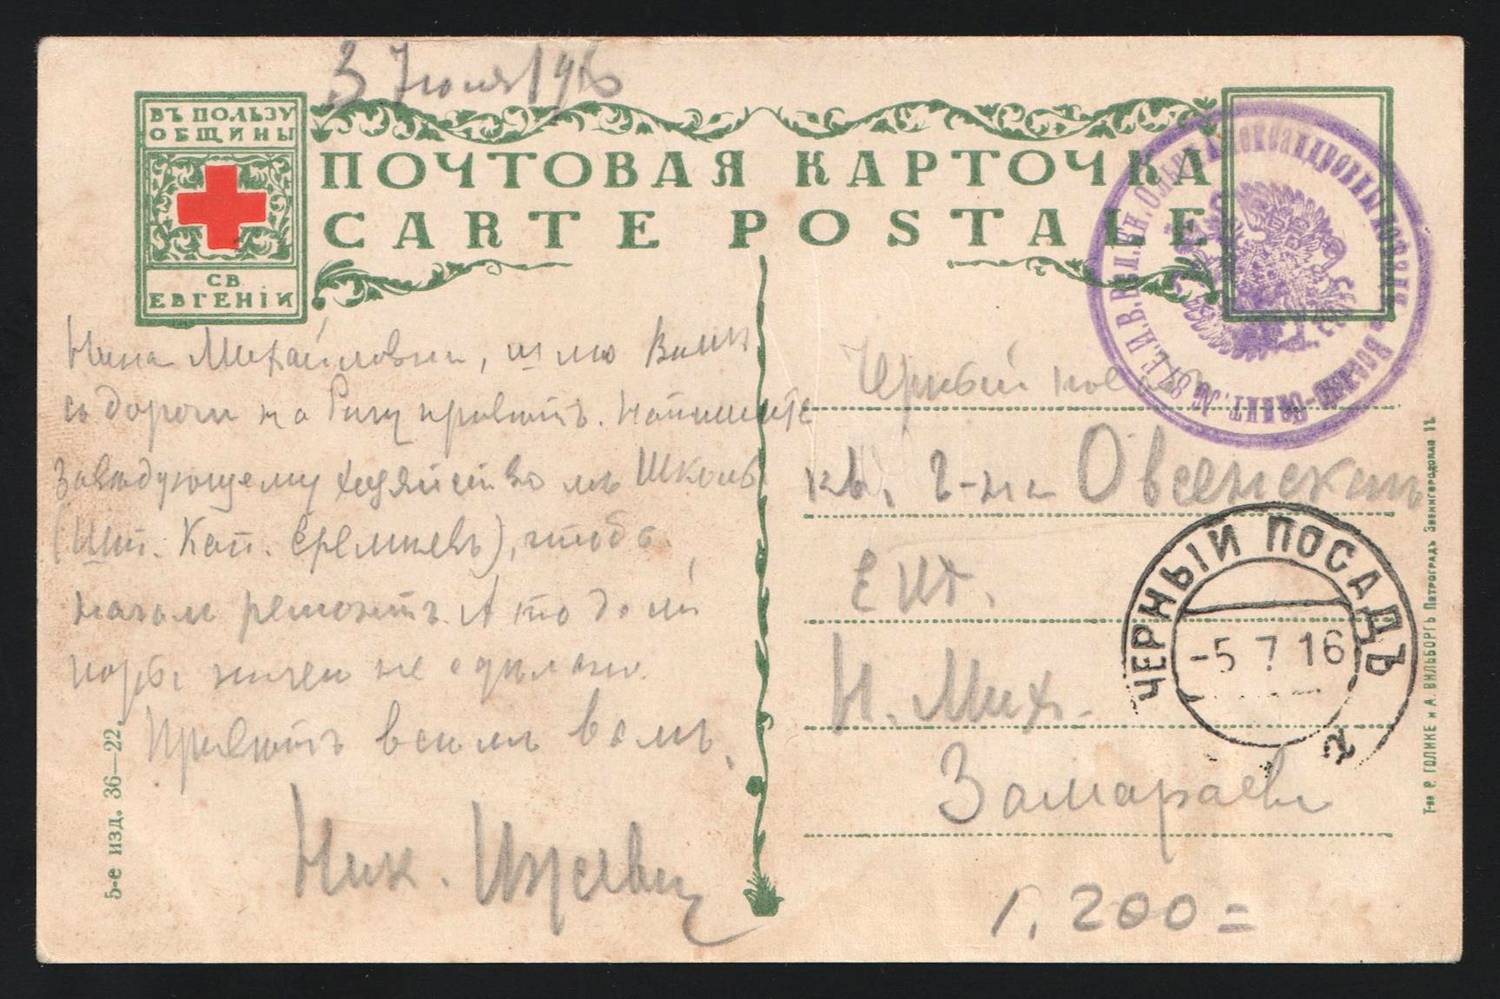 3 Июля 1916
ВЪ ПОЛЬЗУ
ОБЩИНЫ
СВ
ЕВГЕНІИ
ПОЧТОВАЯ КАРТОЧКА
CARTE POSTALE
Нина Михайловна, шлю Вамъ
съ дороги на Ригу приветъ. Напишите
Заведующему хозяйством Школы
(Шт. Кап. Еремеевъ), чтобъ
начали ремонтъ. А то до сей
поры ничего не сделано.
Приветъ всемъ вамъ.
Ник.
5-е изд. 36—22
Черный посадъ
кв. г-на Овсенскаго
Н. Мих.
Замараевой
200=
ЧЕРНЫЙ ПОСАДЪ
-5 7 16
Т-во Р. ГОЛИКЕ и А. ВИЛЬБОРГЪ Петроградъ Звенигородская 11